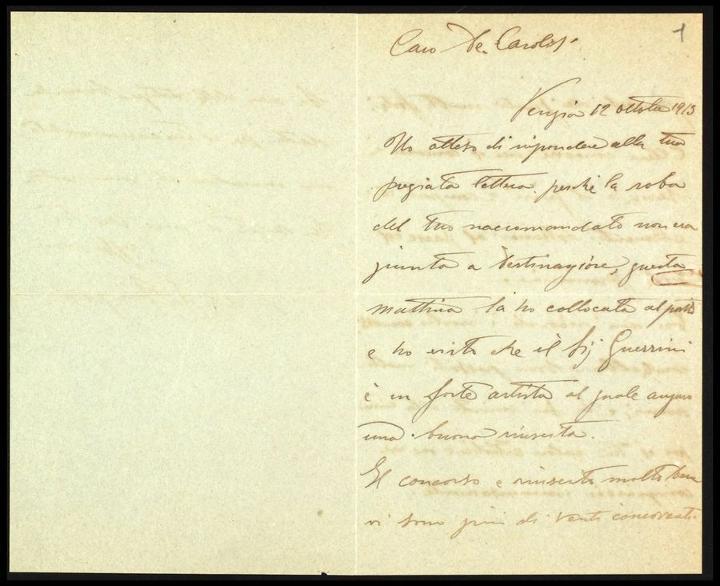 1
Caro De Carolis
Perugia 12 ottobre 1913
Ho atteso di rispondere alla tua
pregiata lettera perchè la roba
del tuo raccomandato non era
giunta a destinazione, questa
mattina la ho collocata al posto
e ho visto che il Sig Guerrini
è un forte artista al quale auguro
una buona riuscita.
Il concorso è riuscito molto bene
vi sono più di venti concorrenti